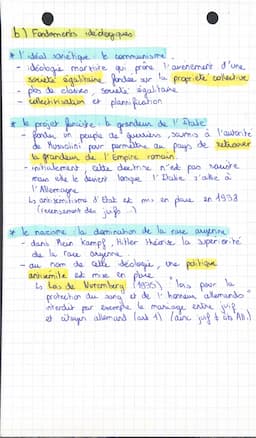 b) Fondements idéologiques
* l'idéal soviétique : le communisme.
- idéologie marxiste qui prône l'avènement d'une
société égalitaire fondée sur la propriété collective
- pas de classe, société égalitaire
- collectivisation et planification
* le projet fasciste : la grandeur de l'Italie
- fonder un peuple de guerriers, soumis à l'autorité
de Mussolini pour permettre au pays de retrouver
la grandeur de l'Empire romain.
- initialement, cette doctrine n'est pas raciste
mais elle le devient lorsque l'Italie s'allie à
l'Allemagne
↳ antisémitisme d'Etat est mis en place en 1938
(recensement des juifs...)
* le nazisme : la domination de la race aryenne
- dans Mein Kampf, Hitler théorise la supériorité
de la race aryenne.
- au nom de cette idéologie, une politique
antisémite est mise en place
↳ Lois de Nuremberg (1935) "lois pour la
protection du sang et de l'honneur allemands"
interdit par exemple le mariage entre juif
et citoyen allemand (art 1) (donc juif ≠ All.)